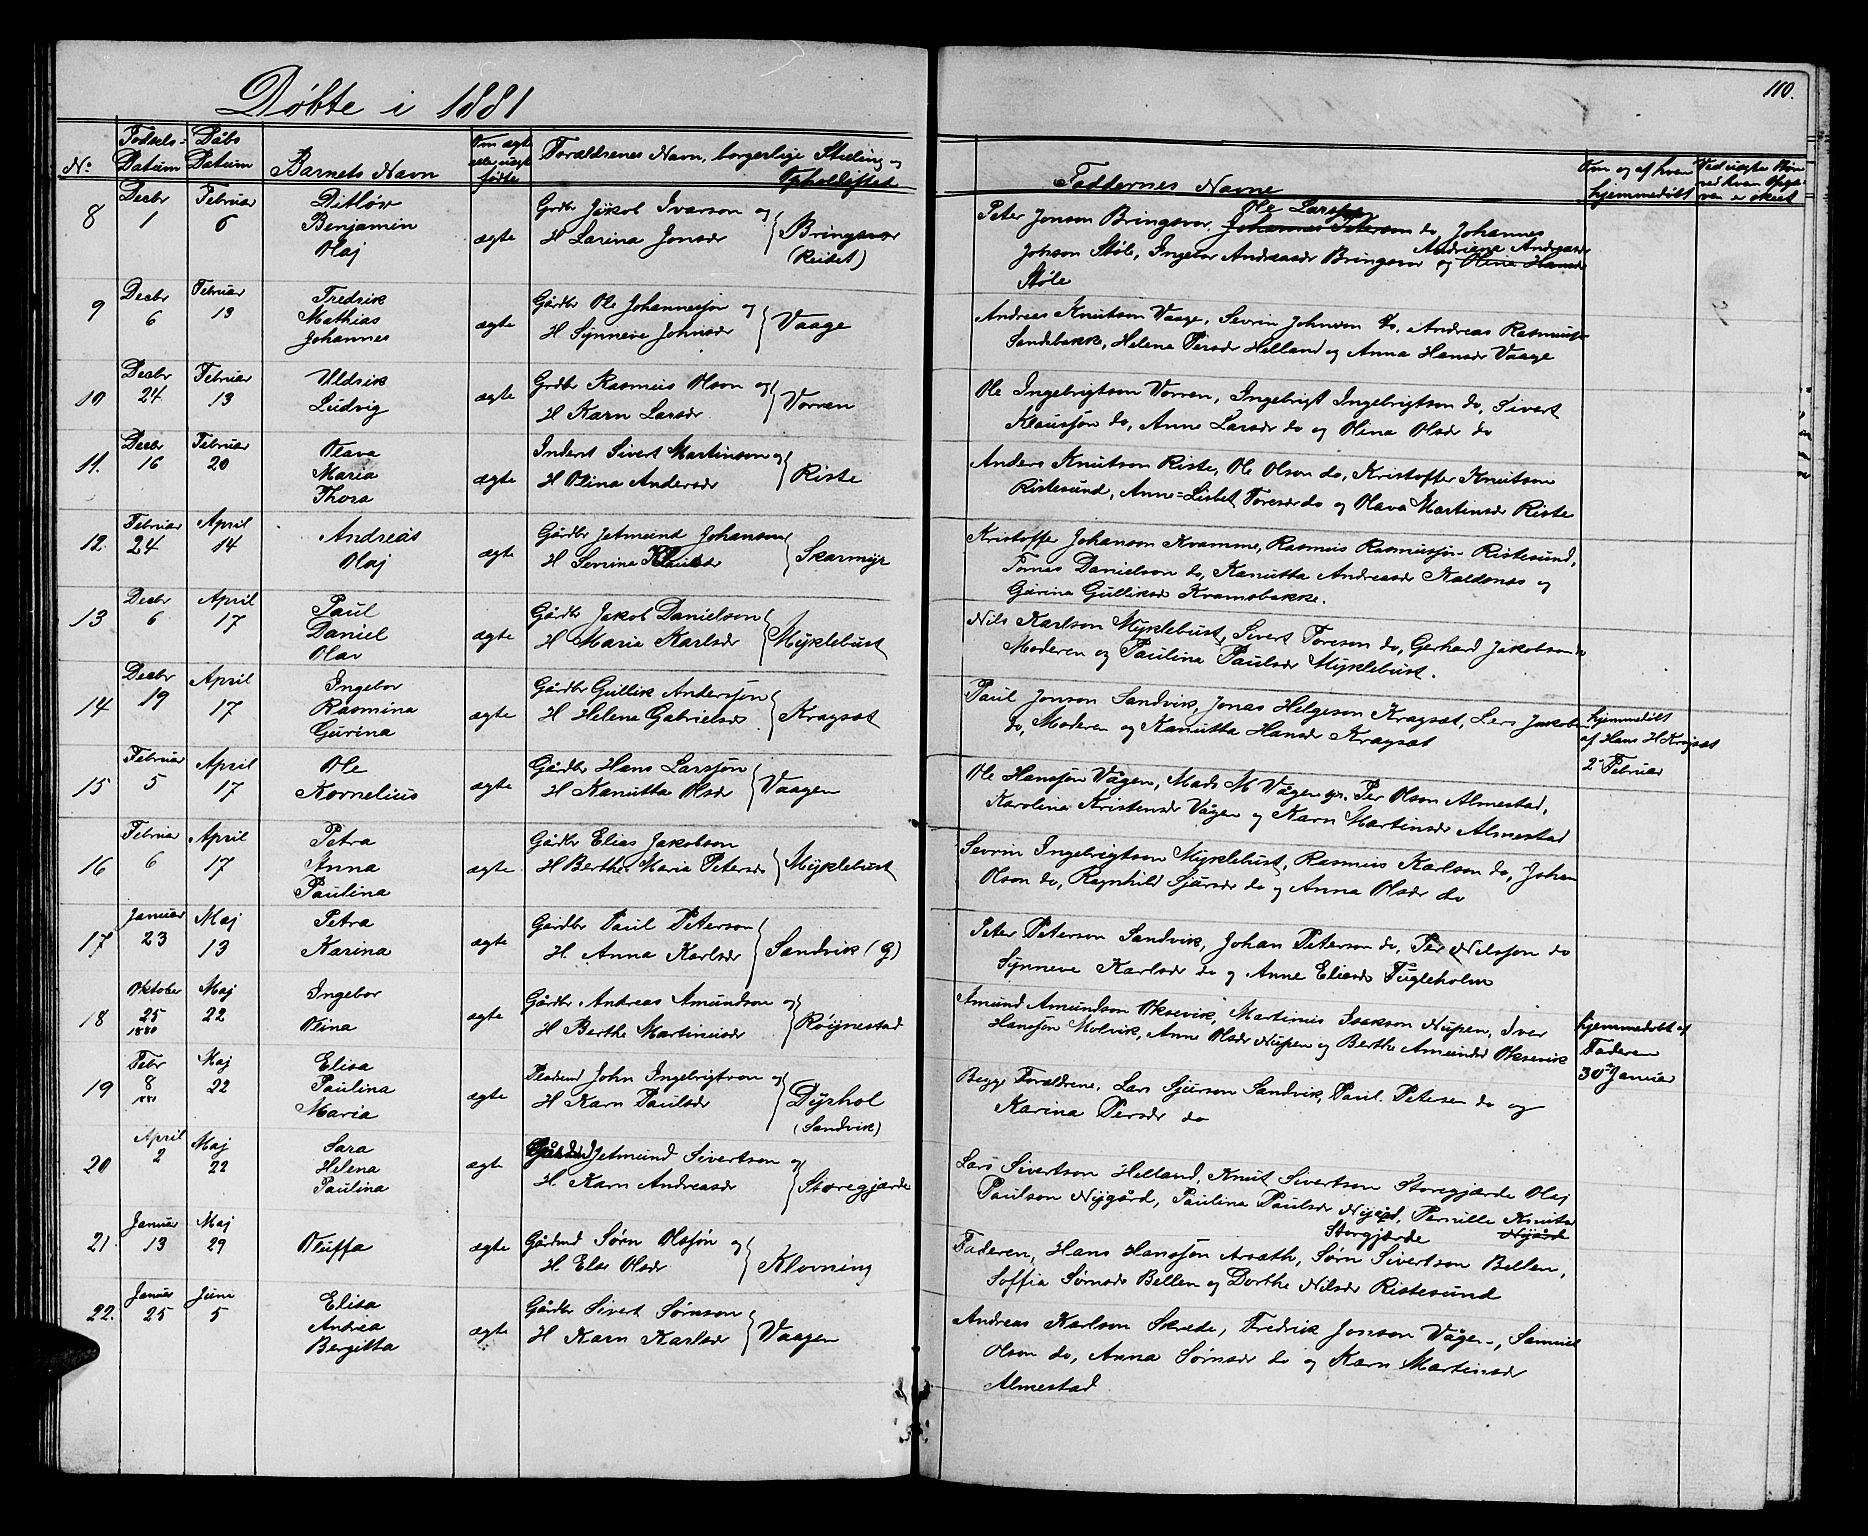 Døbte i 1881
110.
No
Fødsels-
Datum
Dåbs
Datum
Barnets Navn
Om ægte
eller uægte
fødte
Forældrenes Navn, borgerlige Stilling og
Opholdssted
Faddernes Navne
Om og af hvem
hjemmedøbt
8
Decbr
1
Februar
6
Ditløv
Benjamin
Olaj
ægte
Grdbr Jakob Ivarson og
H Larina Jonsdr
Bringsvor
Peter Jonson Bringsvor, Johannes Peterson do, Johannes
Ole Larssøn
Johson Støle, Ingebor Andreasdr Bringsvor og Olina Hansdr
Andriane Andreasdr
Støle
9
Decbr
6
Februar
13
Fredrik
Mathias
Johannes
ægte
Gårdbr Ole Johannessøn og
H Synneve Johnsdr
Vaage
Andreas Knutson Vaage, Sevrin Johnsen do, Andreas Rasmussøn
Sandsbakk, Helena Persdr Helland og Anna Hansdr Vaage
10
Decbr
24
Februar
13
Uldrik
Ludvig
ægte
Grdbr Rasmus Olson og
H Karn Larsdr
Vorren
Ole Ingebrigtson Vorren, Ingebrigt Ingebrigtson do, Sivert
Klaussøn do, Anne Larsdr do og Olina Olsdr do
11.
Decbr
16
Februar
20
Olava
Maria
Thora
ægte
Inderst Sivert Martinson og
H Olina Andersdr
Riste
Anders Knutson Riste, Ole Olson do, Kristoffer Knutson
Ristesund, Anne-Lisbet Toresdr do og Olava Martinsdr Riste
12.
Februar
24
April
14
Andreas
Olaj
ægte
Gårdbr Jetmund Johanson
H Sevrina Klausdr
Skarmyr
Kristoffer Johanson Kvamme, Rasmus Rasmussøn Ristesund,
Tomas Danielson do, Kanutta Andreasdr Koldsnes og
Gurina Gulliksdr Kvamsbakke.
13
Decbr
6
April
17
Paul
Daniel
Olav
ægte
Gårdbr Jakob Danielson
H Maria Karlsdr
Myklebust
Nils Karlson Myklebust, Sivert Toreson do, Gerhard Jakobson
Moderen og Paulina Paulsdr Myklebust.
14
Decbr
19
April
17
Ingebor
Rasmina
Gurina
ægte
Gårdbr Gullik Anderssøn
H Helena Gabrielsdr
Kragsæt
Paul Jonson Sandvik, Jonas Helgeson Kragsæt, Lars Jakobson
do, Moderen og Kanutta Hansdr Kragsæt
hjemmedøbt
af Hans H Kragsæt
2 Februar
15
Februar
5
April
17
Ole
Kornelius
ægte
Gårdbr Hans Larssøn
H Kanutta Olsdr
Vaagen
Ole Hanssøn Vågen, Mads M Vågen gr. Per Olson Almestad,
Karolina Kristensdr Vågen og Karn Martinsdr Almestad
16
Februar
6
April
17
Petra
Anna
Paulina
ægte
Gårdbr Elias Jakobson
H Berthe Maria Petersdr
Myklebust
Sevrin Ingebrigtson Myklebust, Rasmus Karlson do, Johan
Olson do, Ragnhild Sjursdr do og Anna Olsdr do
17
Januar
23
Maj
13
Petra
Karina
ægte
Gårdbr Paul Peterson
H Anna Karlsdr
Sandvik (G)
Peter Peterson Sandvik, Johan Peterson do, Per Nilssøn do
Synneve Karlsdr do og Anne Eliasdr Fugleholm
18
Oktober
25
1880
Maj
22
Ingebor
Olina
ægte
Gårdbr Andreas Amundson og
H Berthe Martinusdr
Røijnestad
Amund Amundson Oksevik, Martinus Isakson Nupen, Iver
Hanssøn Molvik, Anne Olsdr Nupen og Berthe Amundsdr Oksevik
hjemmedøbt af
Faderen
30te Januar
19
Febr
8
Maj
22
Elisa
Paulina
Maria
ægte
John Ingebrigtson og
H Karn Paulsdr
Dyrhol
(Sandvik)
Begge Forældrene, Lars Sjurson Sandvik, Paul Peterson do og
Karina Persdr do
20
April
2
Maj
22
Sara
Helena
Paulina
ægte
Jetmund Sivertson og
H Karn Andreasdr
Storegjærde
Lars Sivertson Helland, Knut Sivertson Storegjærde Olaj
Paulson Nygård, Paulina Paulsdr Nygård, Pernille Knutsdr
Storgjærde Nygårde
21.
Januar
13
Maj
29
Oluffa
ægte
Gårdmd Sørn Olssøn og
H. Else Olsdr
Klovning
Faderen, Hans Hanssøn Arsæth, Sørn Sivertson Bellen,
Soffia Sørnsdr Bellen og Dorthe Nilsdr Ristesund
22.
Januar
25
Juni
5
Elisa
Andrea
Bergitta
ægte
Gårdbr Sivert Sørnson
H Karn Karlsdr
Vaagen
Andreas Karlson Skrede, Fredrik Jonson Vågen, Samuel
Olson do, Anna Sørnsdr do og Karn Martinsdr
Almestad